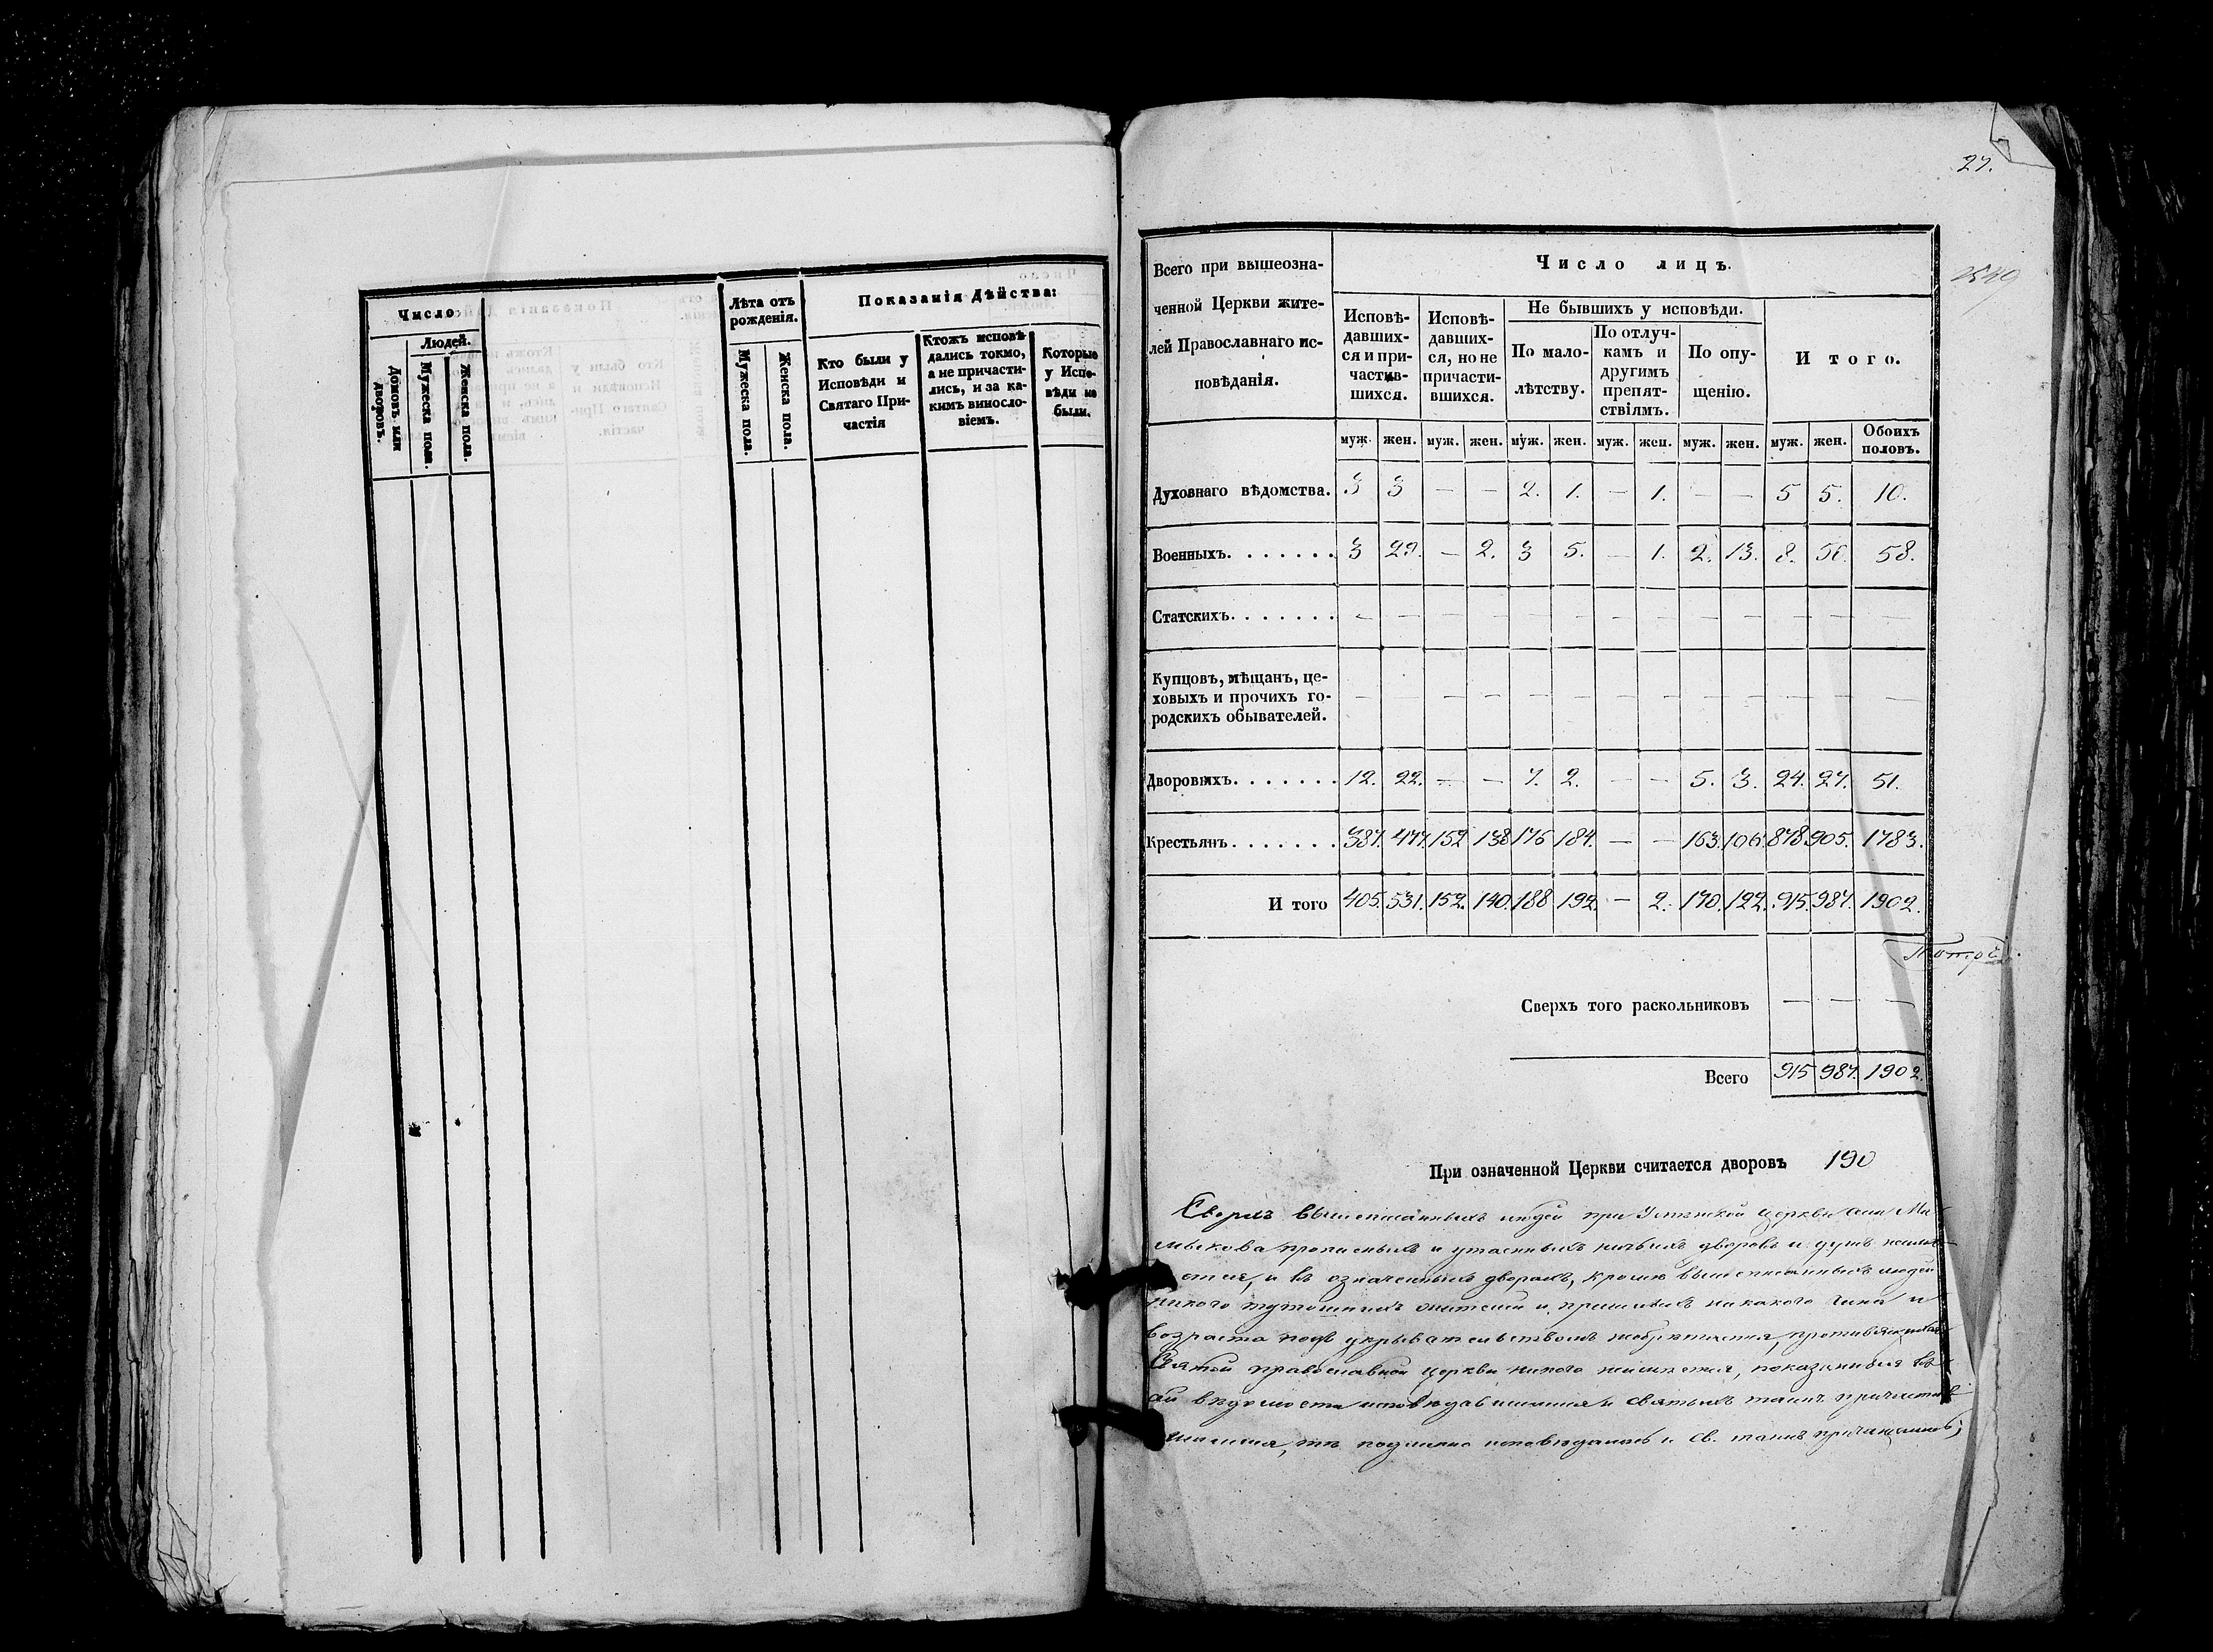 Число
Людей.
Домовъ или дворовъ.
Мужеска пола.
Женска пола.
Лѣта отъ рожденія.
Мужеска пола.
Женска пола.
Показанія Дѣйства:
Кто были у
Исповѣди и
Святаго При-
частія
Ктожъ исповѣ-
дались токмо,
а не причасти-
лись, и за ка-
кимъ винсло-
віемъ.
Которые
у Испо-
вѣди не
были.
27.
Всего при вышеозна-
ченной Церкви жите-
лей Православнаго ис-
повѣданія.
Число лицъ.
Исповѣ-
давших-
ся и при-
частив-
шихся.
Исповѣ-
давших-
ся, но не
причасти-
вшихся.
Не бывшихъ у исповѣди.
По мало-
лѣтству.
По отлуч-
камъ и
другимъ
препят-
ствіямъ.
По опу-
щенію.
Итого.
муж. жен. муж. жен. муж. жен. муж. жен. муж. жен. муж. жен. Обоихъ половъ.
Духовнаго вѣдомства. 3 3 — — 2. 1. — 1. — — 5 5. 10.
Военныхъ. . . . . . . 3 29. — 2. 3 5. — 1. 2. 13. 8. 50. 58.
Статскихъ. . . . . . . — — — — — — — — — — — — —
Купцовъ, мѣщанъ, це-
ховыхъ и прочихъ го-
родскихъ обывателей. — — — — — — — — — — — — —
Дворовыхъ. . . . . . . 12. 22. — — 7. 2. — — 5. 3. 24. 27. 51.
Крестьянъ. . . . . . . 387. 477. 152 138 176 184. — — 163. 106. 878 905. 1783.
И того 405. 531. 152. 140. 188 192. — 2. 170. 122. 915. 987. 1902.
Сверхъ того раскольниковъ — — —
Всего 915 987. 1902.
При означенной Церкви считается дворовъ 190
Сверхъ вышеписанныхъ людей при церкви
прописныхъ и утаенныхъ дворовъ и душъ
и въ означенныхъ дворахъ, кромѣ вышеписанныхъ людей
никого тутошнихъ жителей и пришлыхъ никакого чина и
возраста подъ укрывательствомъ
Святой православной церкви никого показанныя
вѣдомости исповѣдавшимися и святыхъ таинъ
подлинно исповѣдались и св. таинъ причащались;